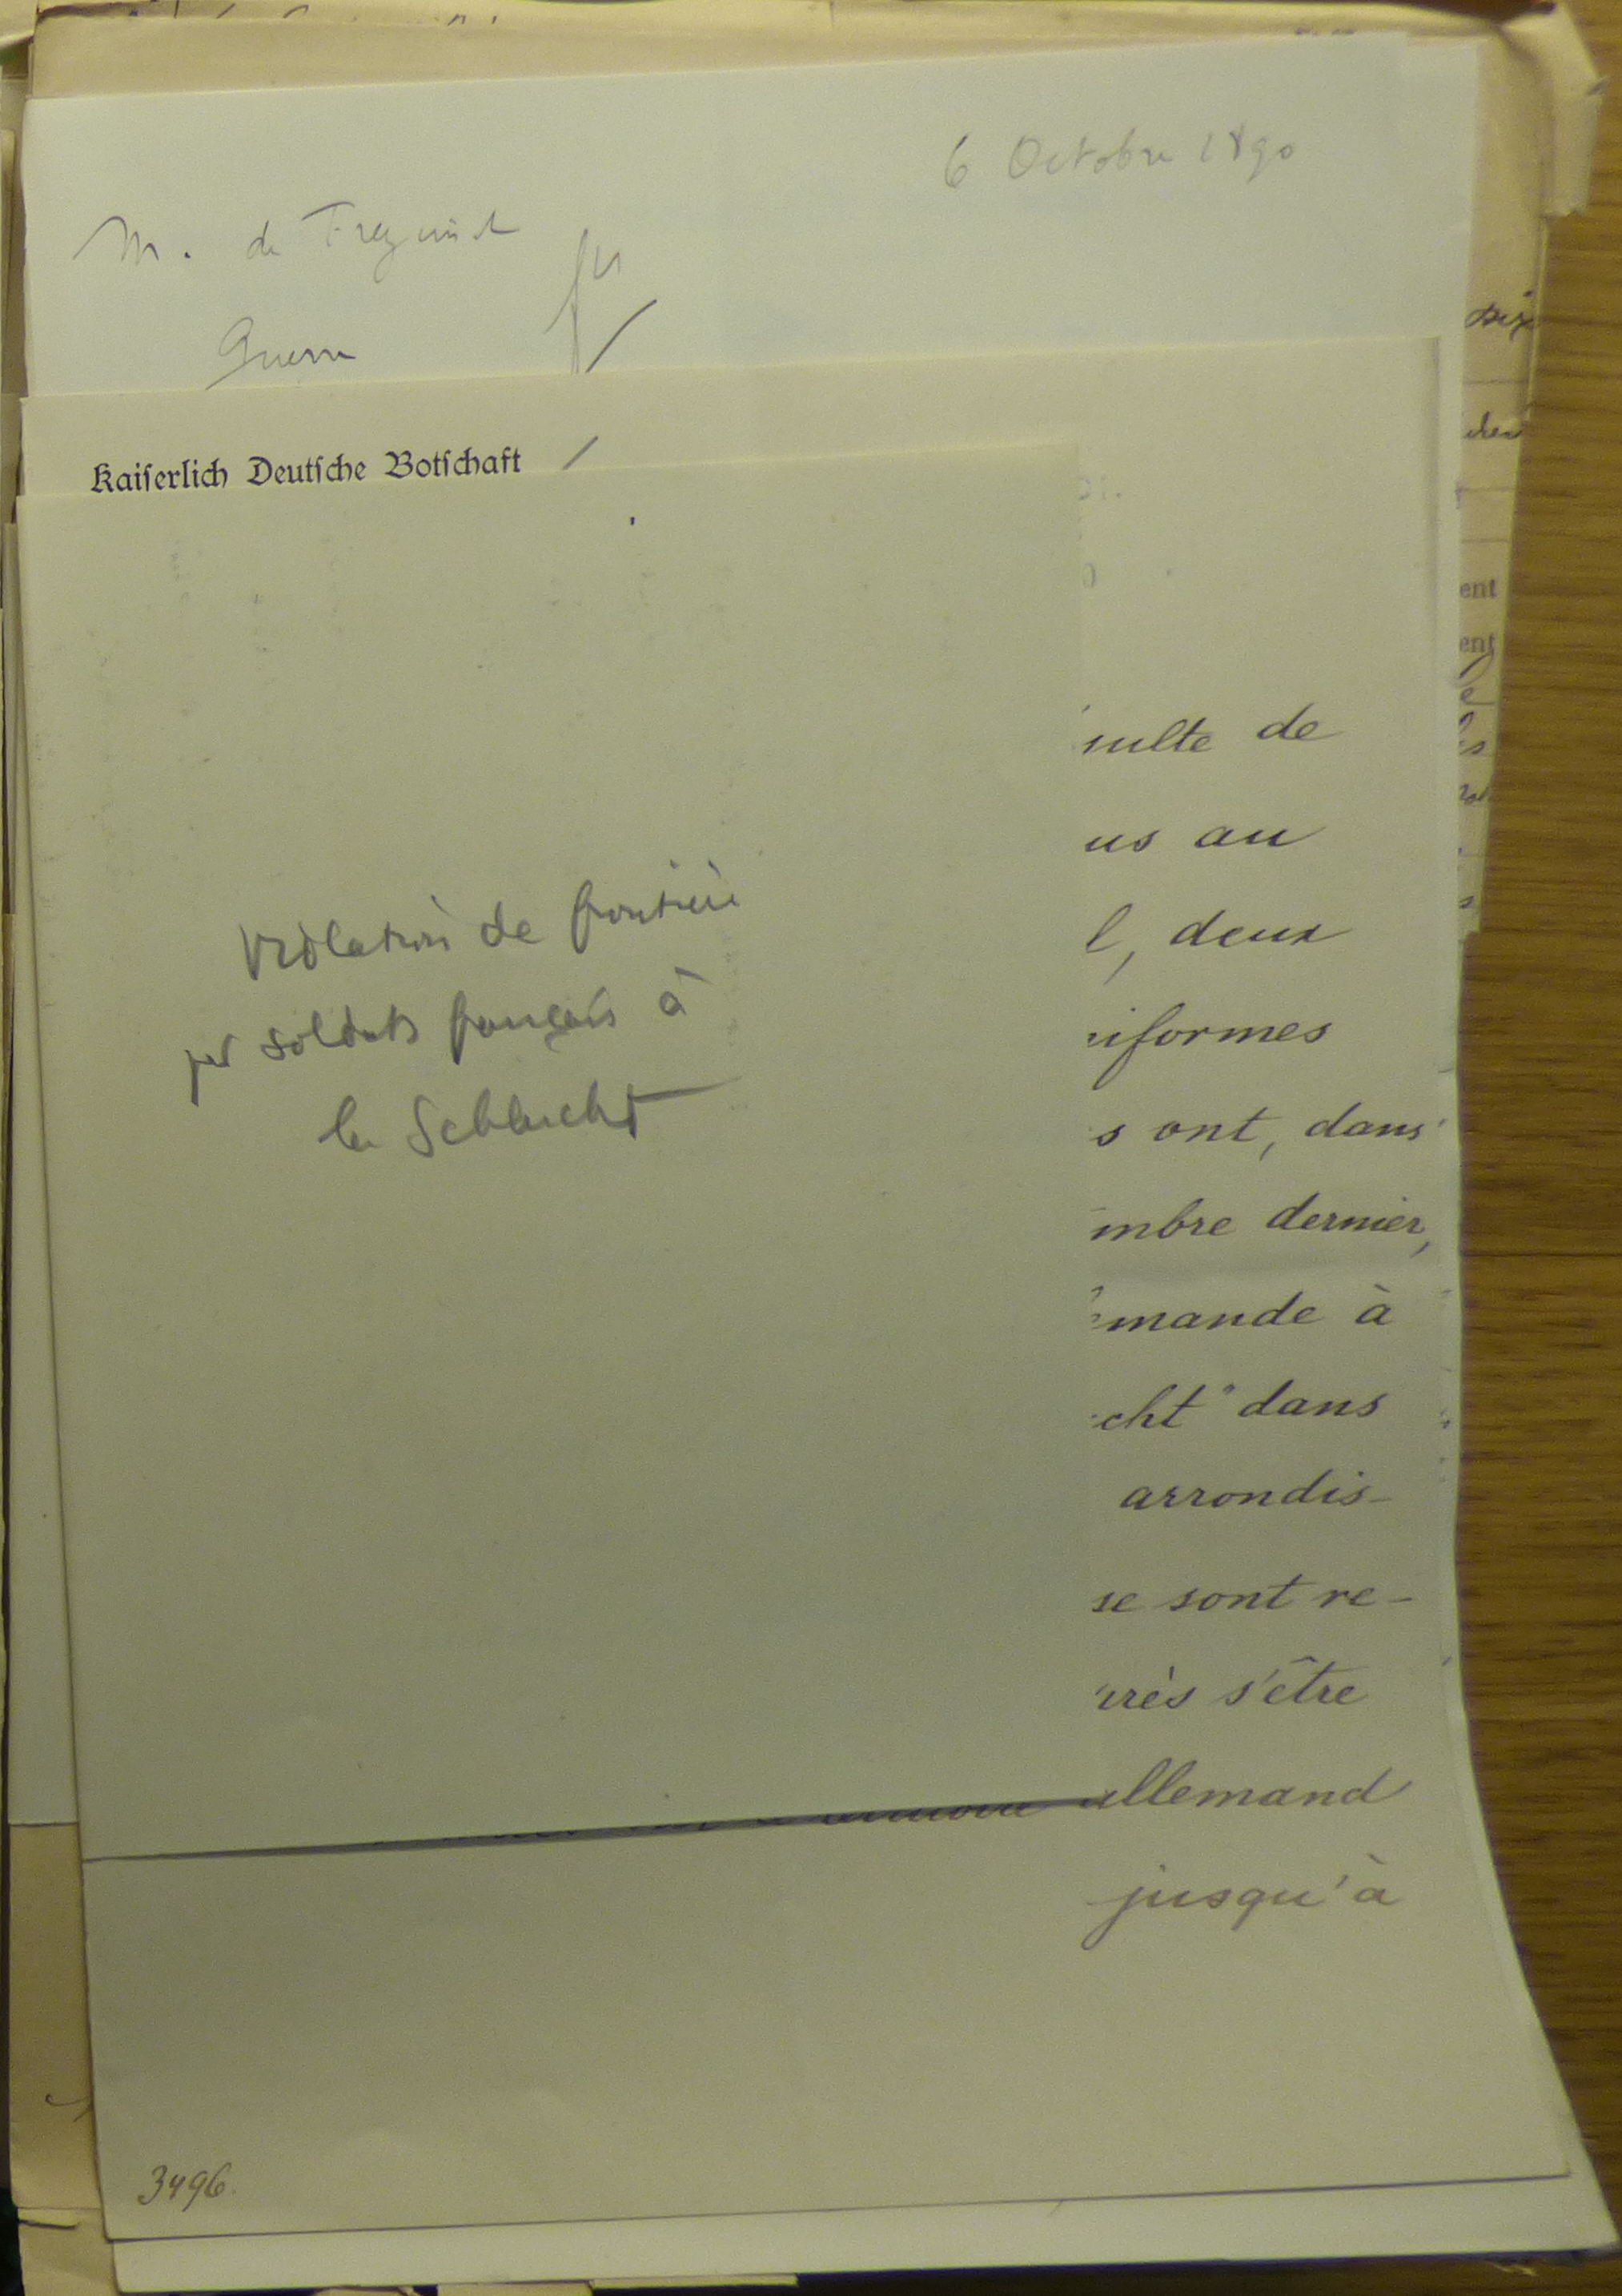 6 Octobre 1890
M. de Freycinet
Guerre
Kaiserlich Deutsche Botschaft
Violation de frontière
par soldats français à
la Schlucht
sulte de
us au
l, deux
niformes
s ont, dans
mbre dernier,
emande à
cht" dans
arrondis-
se sont re-
près s'être
allemand
jusqu'à
3496.
ent
ent